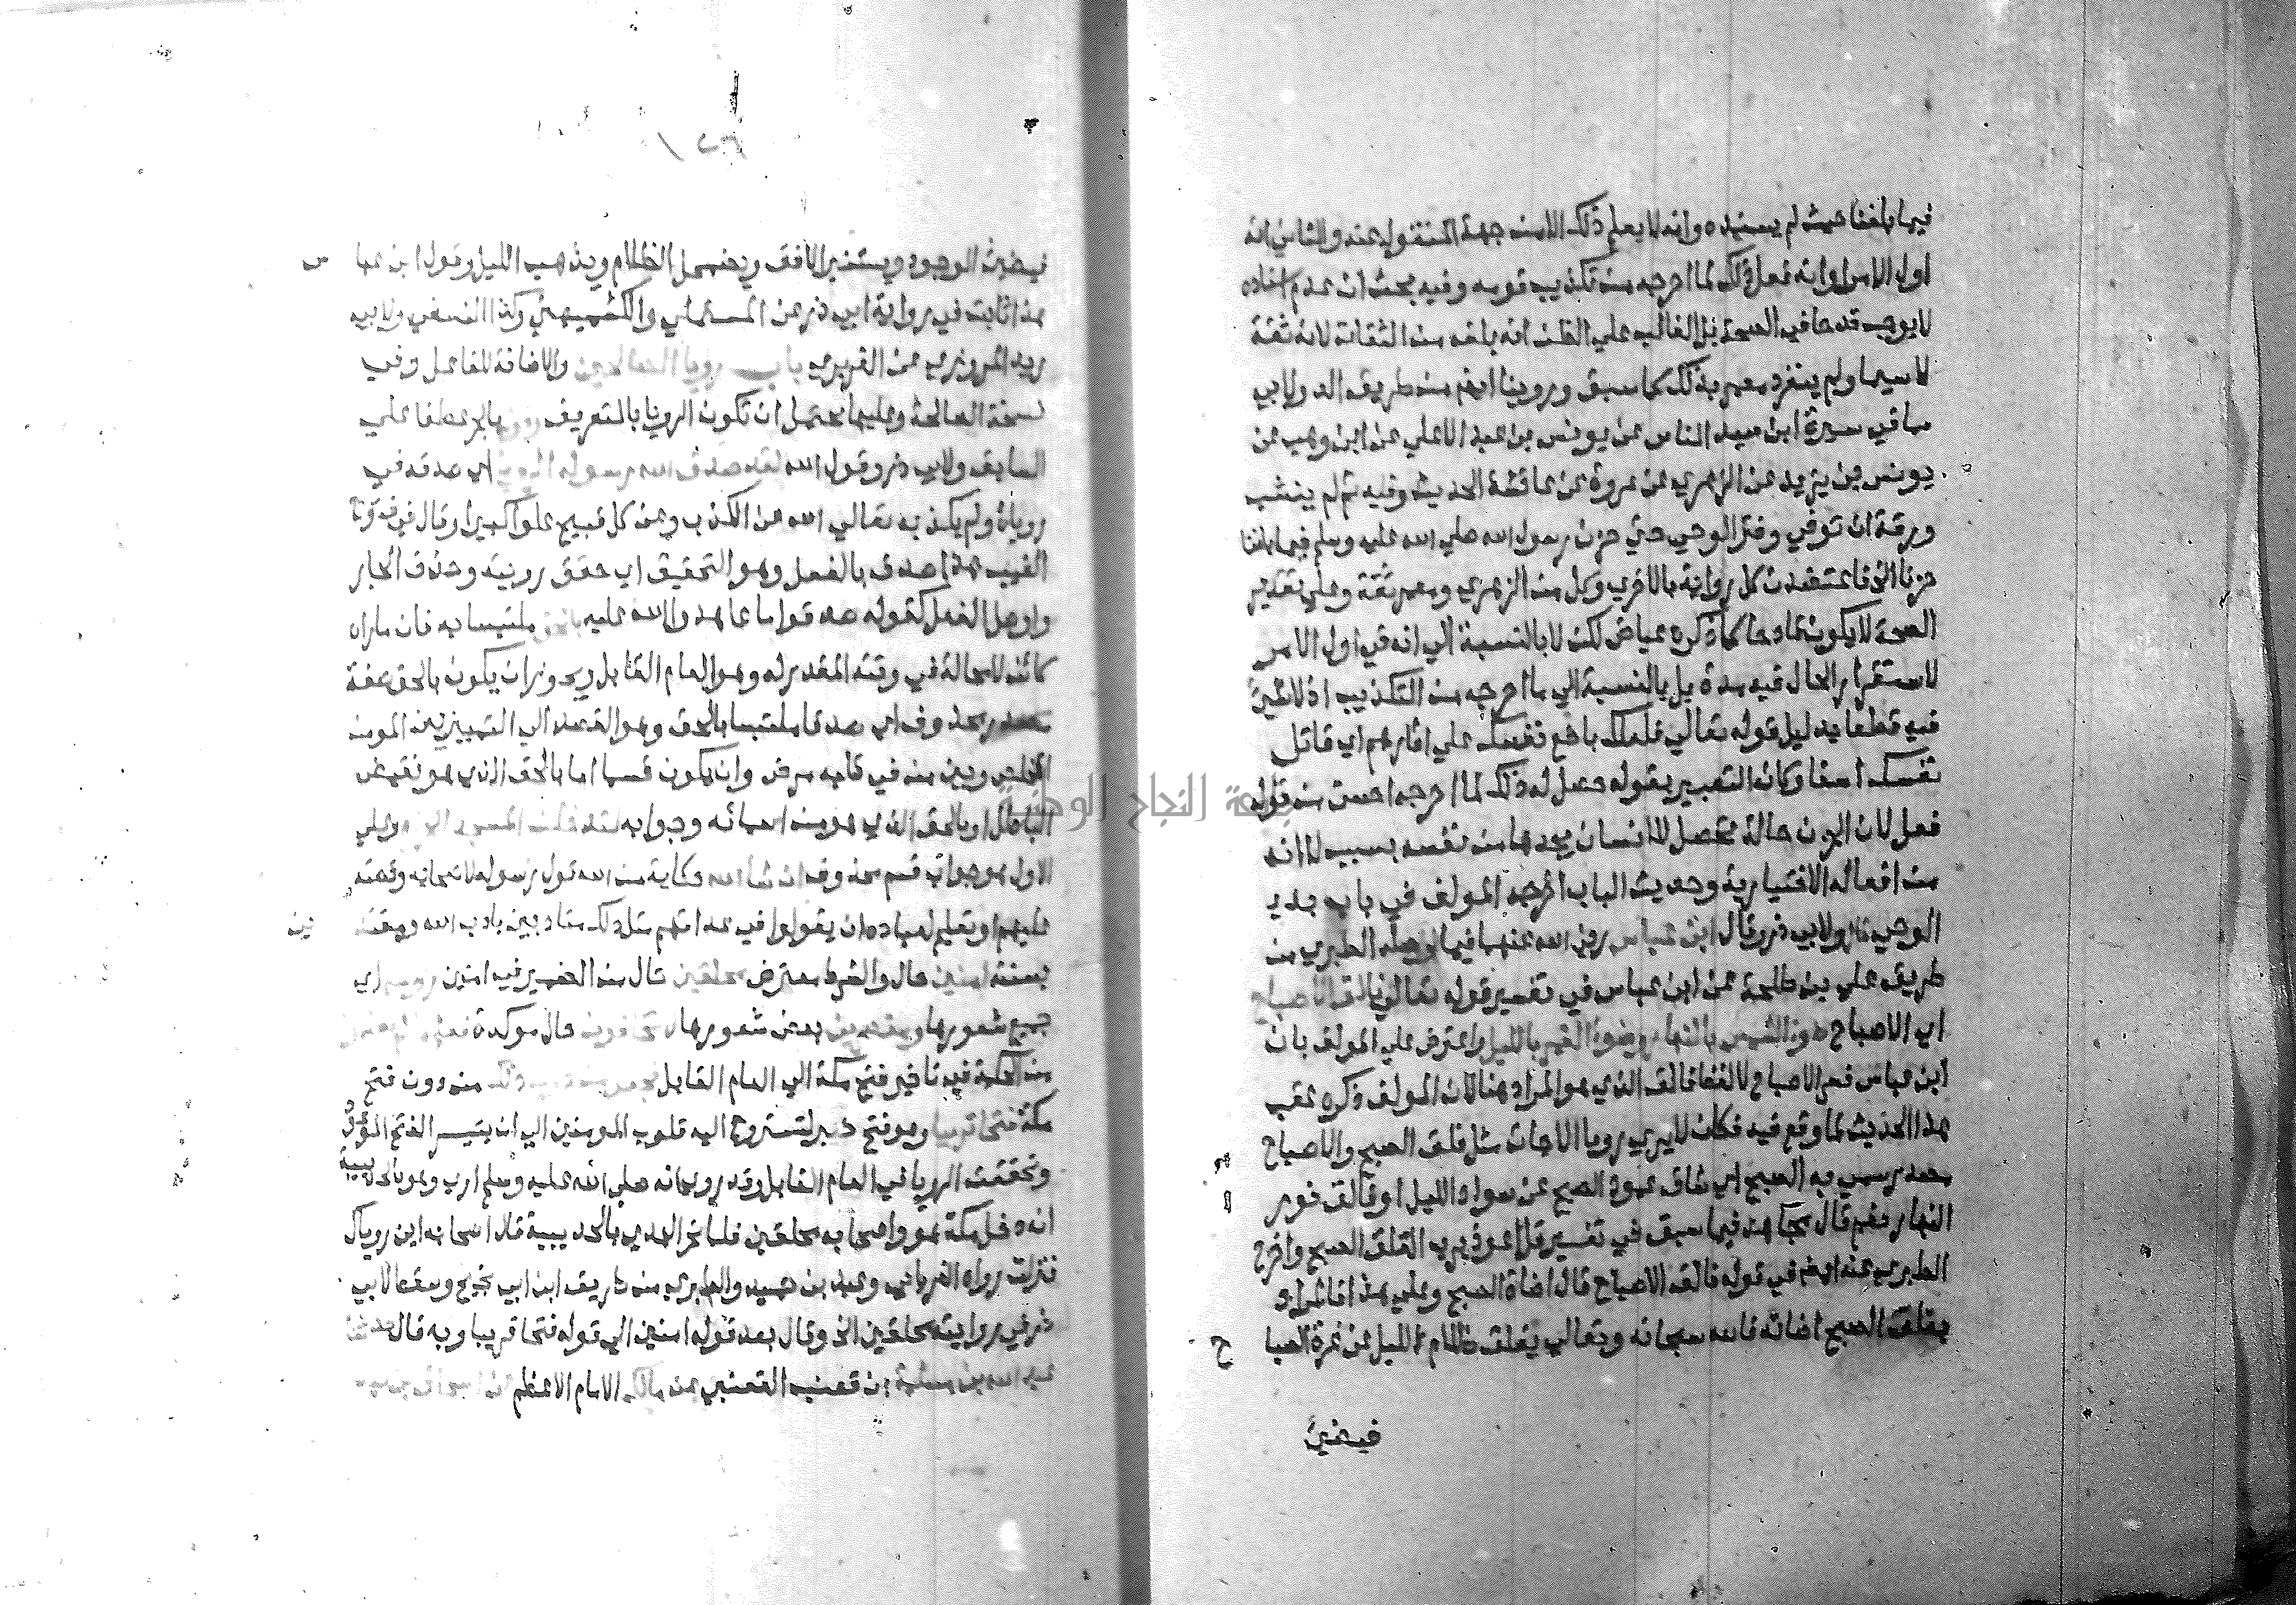 فيما بلغنا حيث لم يسنده وانه لا يعلم ذلك الا من جهة المنقول عنه والثاني انه
اول الامر او انه فعل ذلك لما احرجه من تكذيب قومه وفيه بحث ان عدم اسناده
لا يوجب قدحا في الصحة بل الغالب علي الظن انه بلغه من الثقات لانه ثقة
لا سيما ولم ينفرد معمر بذلك كما سبق وروينا ايضم من طريق الدولابي
مما في سيرة ابن سيد الناس عن يونس بن عبد الاعلي عن ابن وهب عن
يونس بن يزيد عن الزهري عن عروة عن عائشة الحديث وفيه ثم لم ينشب
ورقة ان توفي وفتر الوحي حتي حزن رسول الله صلي الله عليه وسلم فيما بلغنا
حزنا الخ فاعتضدت كل رواية بالاخري وكل من الزهري ومعمر ثقة وعلي تقدير
الصحة لا يكون قادحا كما ذكره عياض لكن لا بالنسبة الي انه في اول الامر
لاستقرار الحال فيه مدة بل بالنسبة الي ما احرجه من التكذيب اذ لا شئ
فيه قطعا بدليل قوله تعالي فلعلك باخع نفسك علي اثارهم اي قاتل
نفسك اسفا وكان التعبير بقوله حصل له ذلك لما احرجه احسن من قوله
فعل لان الحزن حالة تحصل للانسان يجدها من نفسه بسبب لا انه
من افعاله الاختيارية وحديث الباب اخرجه المولف في باب بدء
الوحي قال ولابي ذر وقال ابن عباس رضي الله عنهما فيما وصله الطبري من
طريق علي بن طلحة عن ابن عباس في تفسير قوله تعالي فالق الاصباح
اي الاصباح ضوء الشمس بالنهار وضوء القمر بالليل واعترض علي المولف بان
ابن عباس فسر الاصباح لا لفظ فالق الذي هو المراد هنا لان المولف ذكره عقب
هذا الحديث لما وقع فيه فكان لا يري رويا الا جات مثل فلق الصبح والاصباح
مصدر سمي به الصبح اي شاق عمود الصبح عن سواد الليل او فالق نور
النهار نعم قال مجاهد فيما سبق في تفسير قل اعوذ برب الفلق الصبح واخرج
الطبري عنه ايضم في قوله فالق الاصباح قال اضاة الصبح وعلي هذا فالمراد
بفلق الصبح اضاته فالله سبحانه وتعالي يفلق ظلام الليل عن غرة الصبا
ح
فيضئ
فيضئ الوجود ويستنير الافق ويضمحل الظلام ويذهب الليل وقول ابن عبا
س
هذا ثابت في رواية ابي ذر عن المستملي والكشميهني وكذا النسفي ولابي
زيد المروزي عن الفربري باب رويا الصالحين والاضافة للفاعل وفي
نسخة الصالحة وعليها يحتمل ان تكون الرويا بالتعريف بالجر عطفا علي
السابق ولابي ذر وقول الله لقد صدق الله رسوله الرويا اي صدقه في
روياه ولم يكذبه تعالي الله عن الكذب وعن كل قبيح علوا كبيرا وقال في فتوح
الغيب هذا صدق بالفعل وهو التحقيق اي حقق رويته وحذف الجار
واوصل الفعل كقوله صدقوا ما عاهدوا الله عليه بالحق ملتبسا به فان ماراه
كائن لا محالة في وقته المقدر له وهو العام القابل ويجوز ان يكون بالحق صفة
مصدر محذوف اي صدقا ملتبسا بالحق وهو القصد الي التمييز بين المومن
المخلص وبين من في قلبه مرض وان يكون قسما اما بالحق الذي هو نقيض
الباطل او بالحق الذي هو من اسمائه وجوابه لتدخلن المسجد الحرام وعلي
الاول هو جواب قسم محذوف ان شا الله حكاية من الله قول رسوله لاصحابه وقصته
عليهم او تعليم لعباده ان يقولوا في عداتهم مثل ذلك متادبين باداب الله ومقتد
ين
بسنته امنين حال والشرط معترض محلقين حال من الضمير في امنين روسكم اي
جميع شعورها ومقصرين بعض شعورها لا تخافون حال موكدة فعلم ما لم تعلموا
من الحكمة في تاخير فتح مكة الي العام القابل فجعل من دون ذلك من دون فتح
مكة فتحا قريبا وهو فتح خيبر لتستروح اليه قلوب المومنين الي ان يتيسر الفتح الموعود
وتحققت الرويا في العام القابل وقد روي انه صلي الله عليه وسلم اري وهو بالحديبية
انه دخل مكة هو واصحابه محلقين فلما نحر الهدي بالحديبية قال اصحابه اين روياك
فنزلت رواه الفريابي وعبد بن حميد والطبري من طريق ابن ابي نجيح وسقط لابي
ذر في روايته محلقين الخ وقال بعد قوله امنين الي قوله فتحا قريبا وبه قال حدثنا
عبد الله بن مسلمة بن قعنب القعنبي عن مالك الامام الاعظم عن اسحاق بن عبد